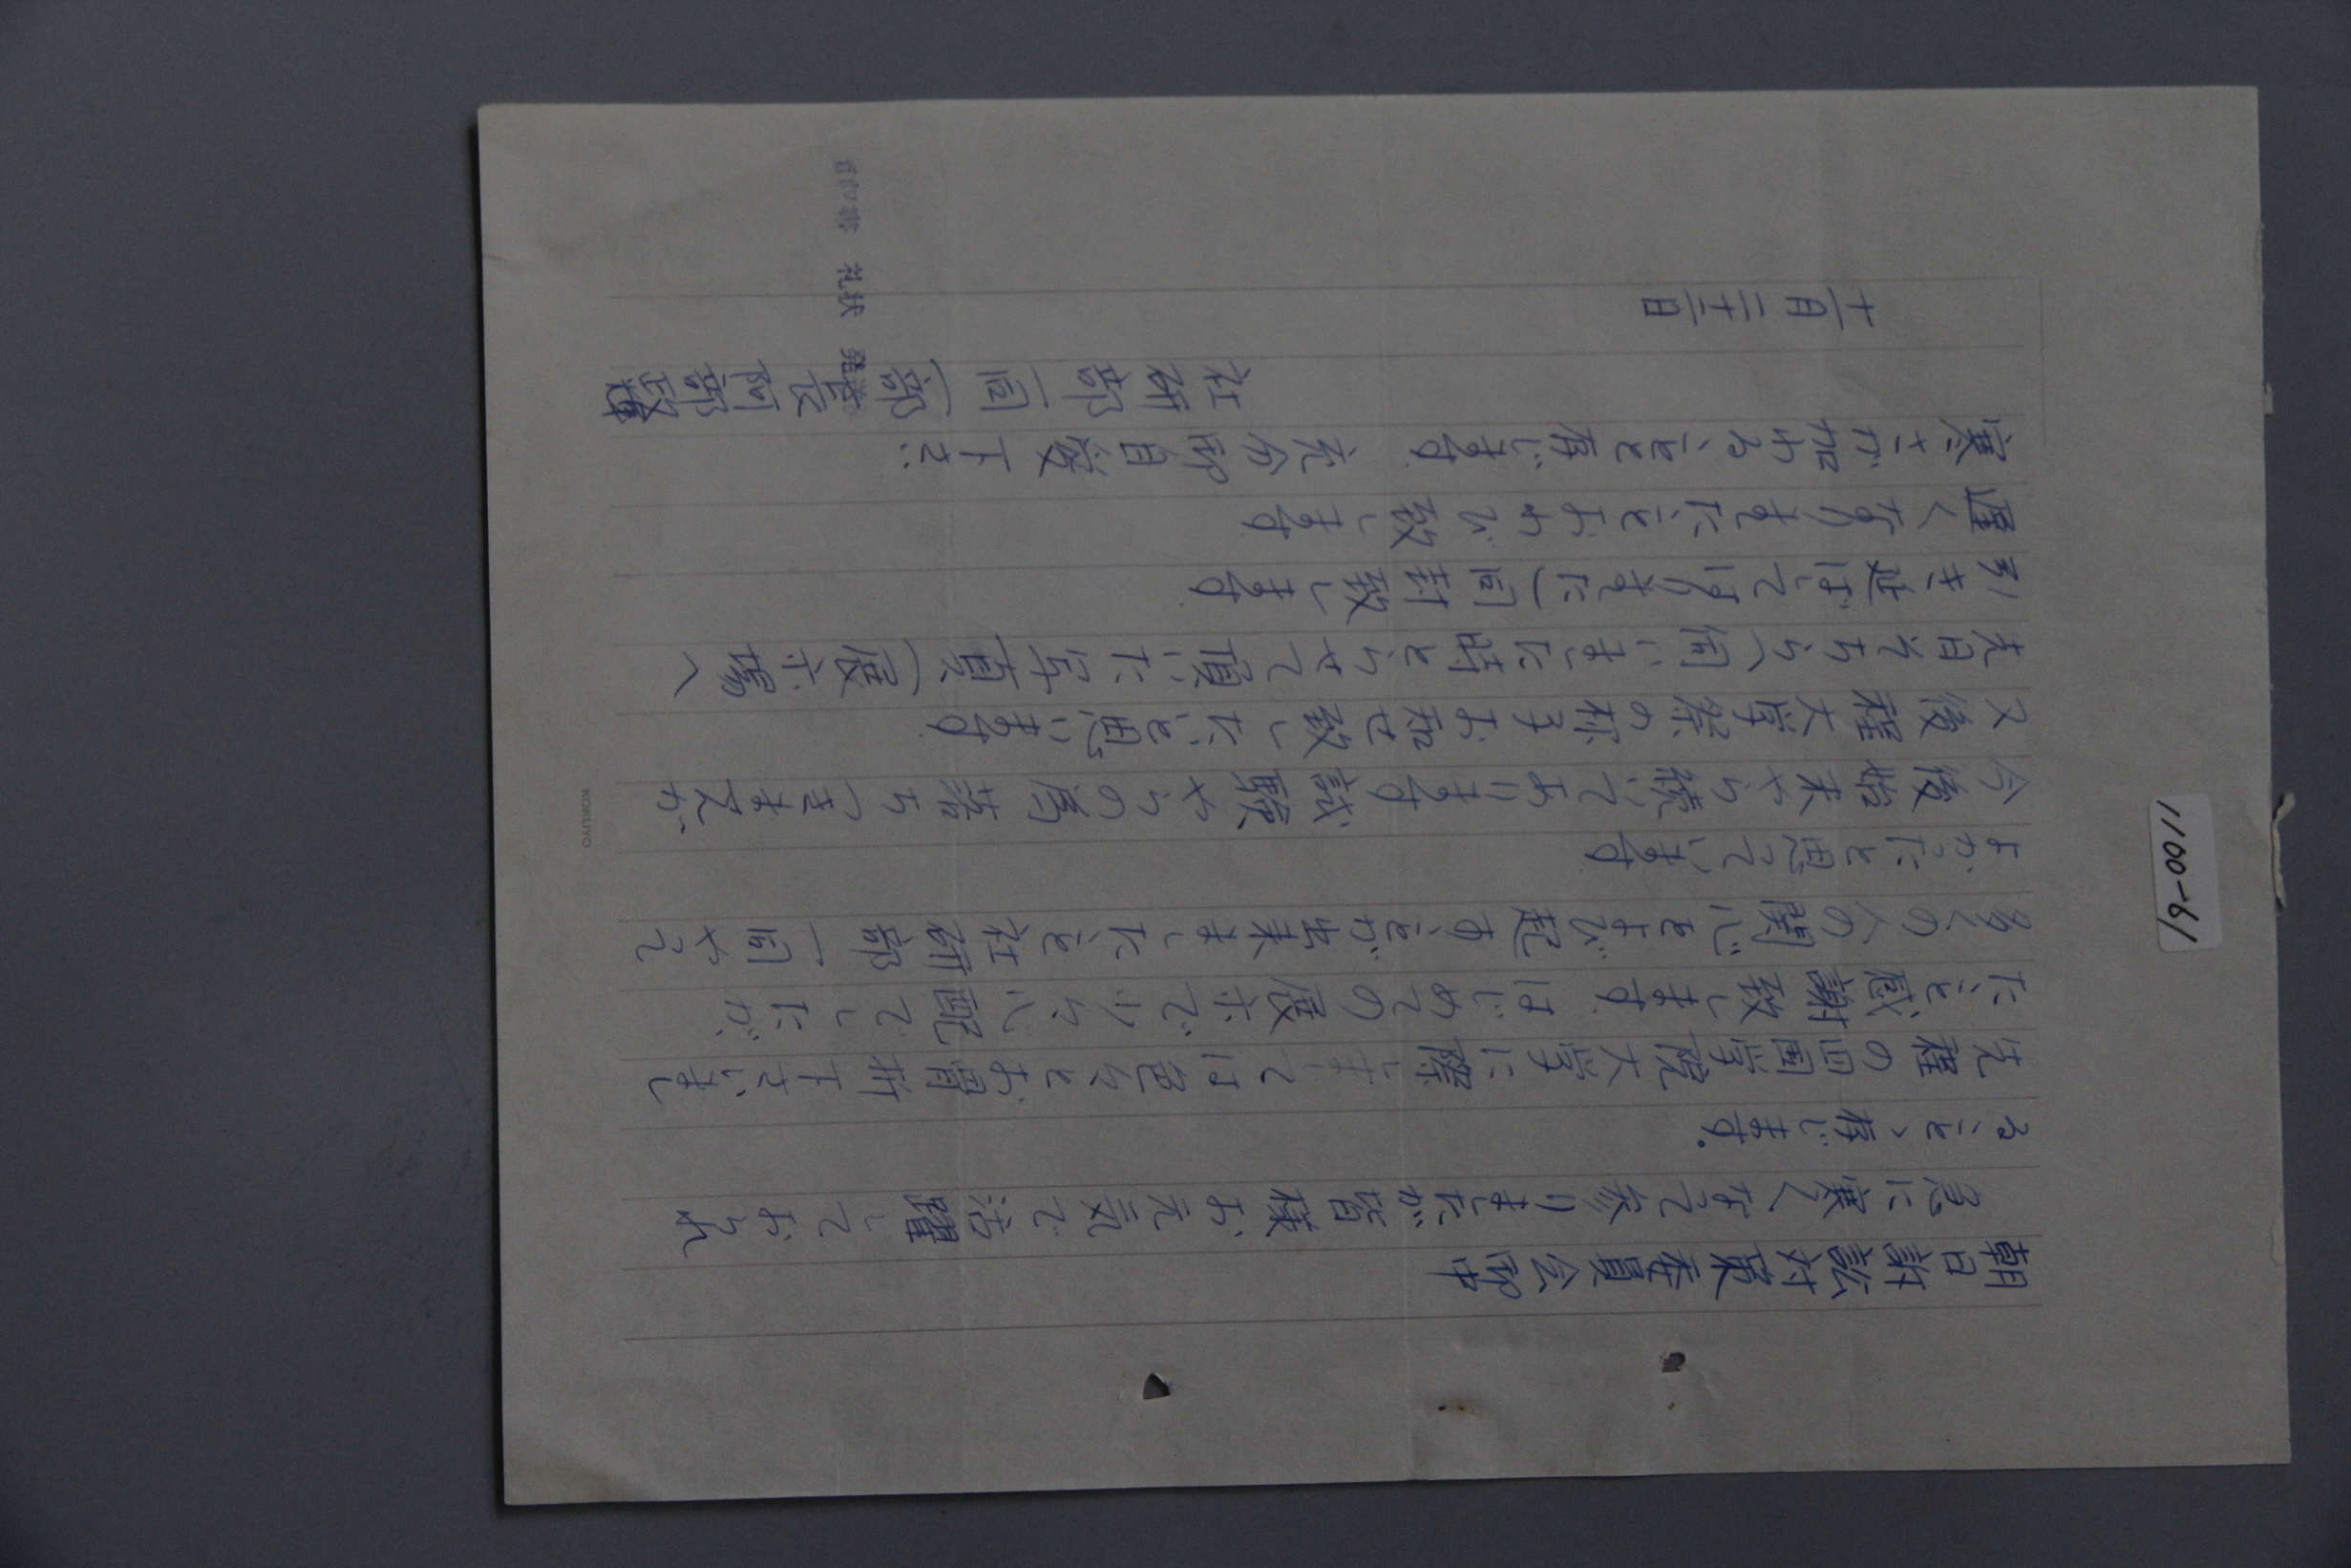 朝日訴訟対策委員会御中
急に寒くなって参りましたが皆様お元気で活躍しておられ
ること、存じます。
先程の四国学院大学に際しましては色々とお骨折下さいまし
たこと感謝致します はじめての展示で少々心配でしたが、
多くの人の関心をよび起すことが出来ましたこと社研部一同やって
よかったと思っています
今後始末やら続いてあります試験やらの為落ちつきませんが、
又後程大学祭の様子お知せ致したいと思います
先日そちらへ伺いました時とらせて頂いた写真(展示場へ
引き延ばしてはりました)同封致します
遅くなりましたことおわび致します
寒さが加わることと存じます 充分御自愛下さい
社研部一同(部長 阿部
十一月二十一日
礼状 発送
1100-61
KOKUYO